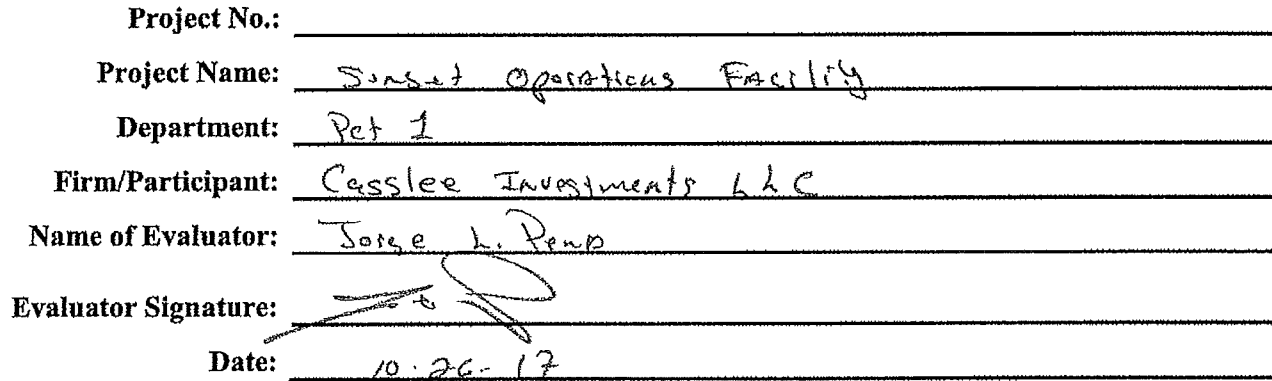 Project No.:
Project Name: Sunset Operations Facility
Department: Pct 1
Firm/Participant: Casslee Investments LLC
Name of Evaluator: Jorge L. Pena
Evaluator Signature:
Date: 10-26-17